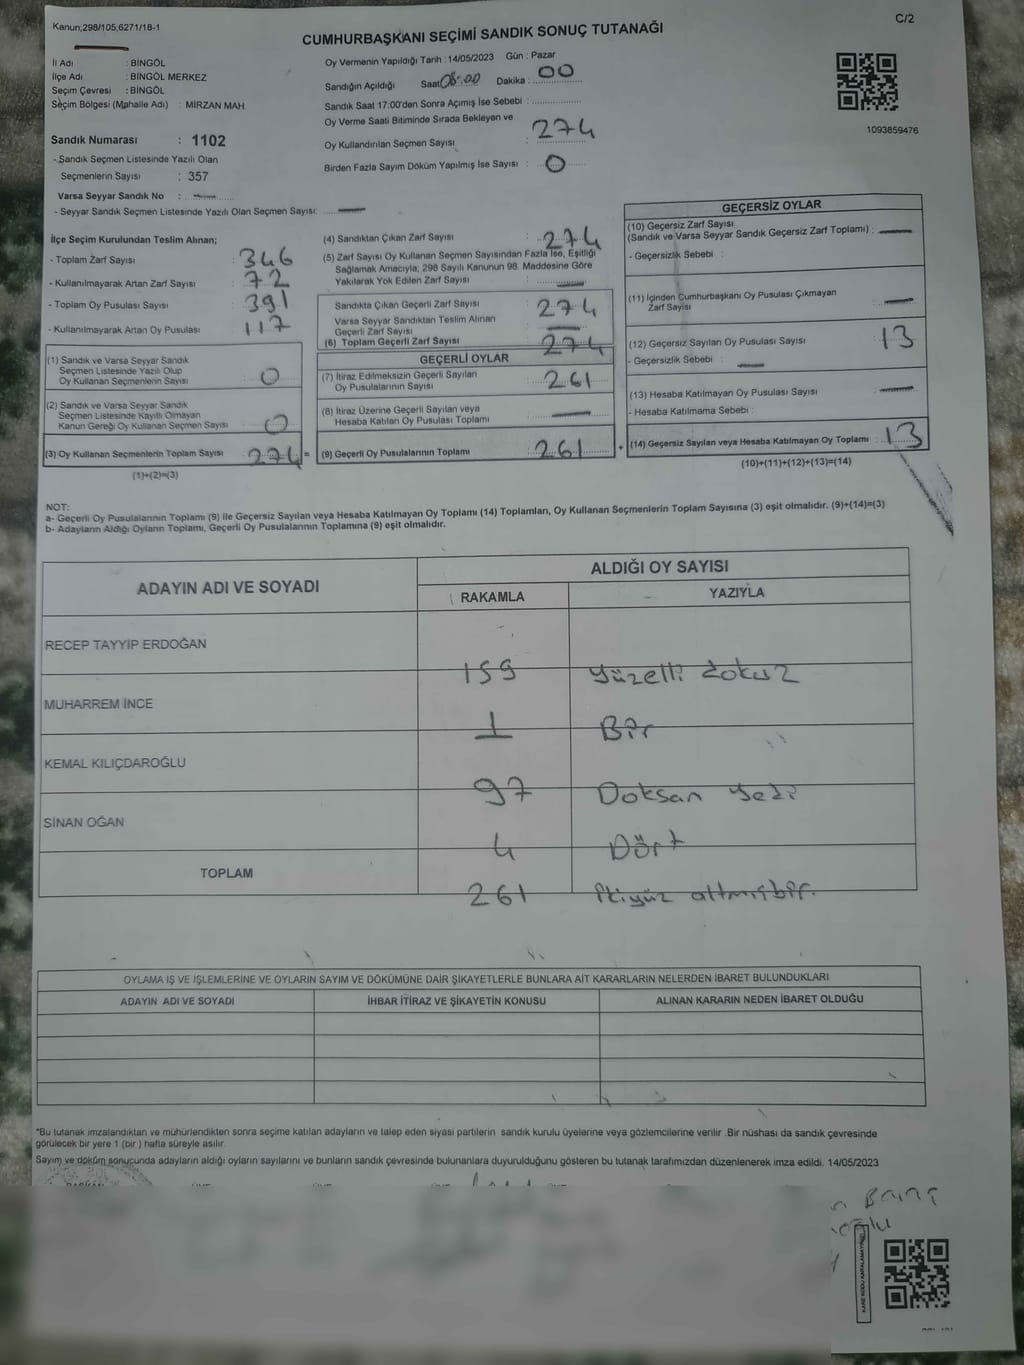 Kanun;298/105,6271/18-1
C/2
CUMHURBAŞKANI SEÇİMİ SANDIK SONUÇ TUTANAĞI
İl Adı : BİNGÖL
İlçe Adı : BİNGÖL MERKEZ
Seçim Çevresi : BİNGÖL
Seçim Bölgesi (Mahalle Adı) : MİRZAN MAH.
Sandık Numarası : 1102
- Sandık Seçmen Listesinde Yazılı Olan
Seçmenlerin Sayısı : 357
Varsa Seyyar Sandık No :
- Seyyar Sandık Seçmen Listesinde Yazılı Olan Seçmen Sayısı:
Oy Vermenin Yapıldığı Tarih : 14/05/2023 Gün : Pazar
Sandığın Açıldığı Saat 08:00 Dakika : 00
Sandık Saat 17:00'den Sonra Açımış İse Sebebi :
Oy Verme Saati Bitiminde Sırada Bekleyen ve
Oy Kullandırılan Seçmen Sayısı : 274
Birden Fazla Sayım Döküm Yapılmış İse Sayısı : 0
1093859476
İlçe Seçim Kurulundan Teslim Alınan;
- Toplam Zarf Sayısı : 346
- Kullanılmayarak Artan Zarf Sayısı : 72
- Toplam Oy Pusulası Sayısı : 391
- Kullanılmayarak Artan Oy Pusulası : 117
(1) Sandık ve Varsa Seyyar Sandık
Seçmen Listesinde Yazılı Olup
Oy Kullanan Seçmenlerin Sayısı : 0
(2) Sandık ve Varsa Seyyar Sandık
Seçmen Listesinde Kayıtlı Olmayan
Kanun Gereği Oy Kullanan Seçmen Sayısı : 0
(3) Oy Kullanan Seçmenlerin Toplam Sayısı : 274 =
(1)+(2)=(3)
(4) Sandıktan Çıkan Zarf Sayısı : 274
(5) Zarf Sayısı Oy Kullanan Seçmen Sayısından Fazla İse, Eşitliği
Sağlamak Amacıyla; 298 Sayılı Kanunun 98. Maddesine Göre
Yakılarak Yok Edilen Zarf Sayısı :
Sandıkta Çıkan Geçerli Zarf Sayısı : 274
Varsa Seyyar Sandıktan Teslim Alınan
Geçerli Zarf Sayısı
(6) Toplam Geçerli Zarf Sayısı : 274
GEÇERLİ OYLAR
(7) İtiraz Edilmeksizin Geçerli Sayılan
Oy Pusulalarının Sayısı : 261
(8) İtiraz Üzerine Geçerli Sayılan veya
Hesaba Katılan Oy Pusulası Toplamı
(9) Geçerli Oy Pusulalarının Toplamı : 261 +
GEÇERSİZ OYLAR
(10) Geçersiz Zarf Sayısı
(Sandık ve Varsa Seyyar Sandık Geçersiz Zarf Toplamı) :
- Geçersizlik Sebebi :
(11) İçinden Cumhurbaşkanı Oy Pusulası Çıkmayan
Zarf Sayısı
(12) Geçersiz Sayılan Oy Pusulası Sayısı : 13
- Geçersizlik Sebebi :
(13) Hesaba Katılmayan Oy Pusulası Sayısı
- Hesaba Katılmama Sebebi :
(14) Geçersiz Sayılan veya Hesaba Katılmayan Oy Toplamı : 13
(10)+(11)+(12)+(13)=(14)
NOT:
a- Geçerli Oy Pusulalarının Toplamı (9) ile Geçersiz Sayılan veya Hesaba Katılmayan Oy Toplamı (14) Toplamları, Oy Kullanan Seçmenlerin Toplam Sayısına (3) eşit olmalıdır. (9)+(14)=(3)
b- Adayların Aldığı Oyların Toplamı, Geçerli Oy Pusulalarının Toplamına (9) eşit olmalıdır.
ADAYIN ADI VE SOYADI
ALDIĞI OY SAYISI
RAKAMLA
YAZIYLA
RECEP TAYYİP ERDOĞAN 159 Yüzelli dokuz
MUHARREM İNCE 1 Bir
KEMAL KILIÇDAROĞLU 97 Doksan yedi
SİNAN OĞAN 4 Dört
TOPLAM 261 ikiyüz altmışbir.
OYLAMA İŞ VE İŞLEMLERİNE VE OYLARIN SAYIM VE DÖKÜMÜNE DAİR ŞİKAYETLERLE BUNLARA AİT KARARLARIN NELERDEN İBARET BULUNDUKLARI
ADAYIN ADI VE SOYADI
İHBAR İTİRAZ VE ŞİKAYETİN KONUSU
ALINAN KARARIN NEDEN İBARET OLDUĞU
*Bu tutanak imzalandıktan ve mühürlendikten sonra seçime katılan adayların ve talep eden siyasi partilerin sandık kurulu üyelerine veya gözlemcilerine verilir. Bir nüshası da sandık çevresinde
görülecek bir yere 1 (bir) hafta süreyle asılır.
Sayım ve döküm sonucunda adayların aldığı oyların sayılarını ve bunların sandık çevresinde bulunanlara duyurulduğunu gösteren bu tutanak tarafımızdan düzenlenerek imza edildi. 14/05/2023
KARE KODU KARALAMAYINIZ